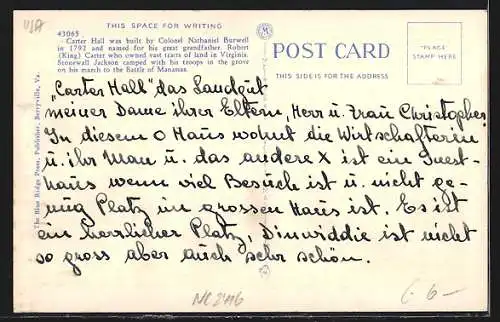 USA
THIS SPACE FOR WRITING
43065
Carter Hall was built by Colonel Nathaniel Burwell
in 1792 and named for his great grandfather, Robert
(King) Carter who owned vast tracts of land in Virginia.
Stonewall Jackson camped with his troops in the grove
on his march to the Battle of Manassas.
POST CARD
THIS SIDE IS FOR THE ADDRESS
PLACE
STAMP HERE
The Blue Ridge Press, Publisher, Berryville, Va.
„Carter Hall" das Landgut
meiner Dame ihrer Eltern, Herr u. Frau Christopher.
In diesem O Haus wohnt die Wirtschafterin
u. ihr Man u. das andere X ist ein Guest-
haus wenn viel Besuch ist u. nicht ge-
nug Platz im grossen Haus ist. Es ist
ein herrlicher Platz, Dinwiddie ist nicht
so gross aber auch sehr schön.
NC2416
6-